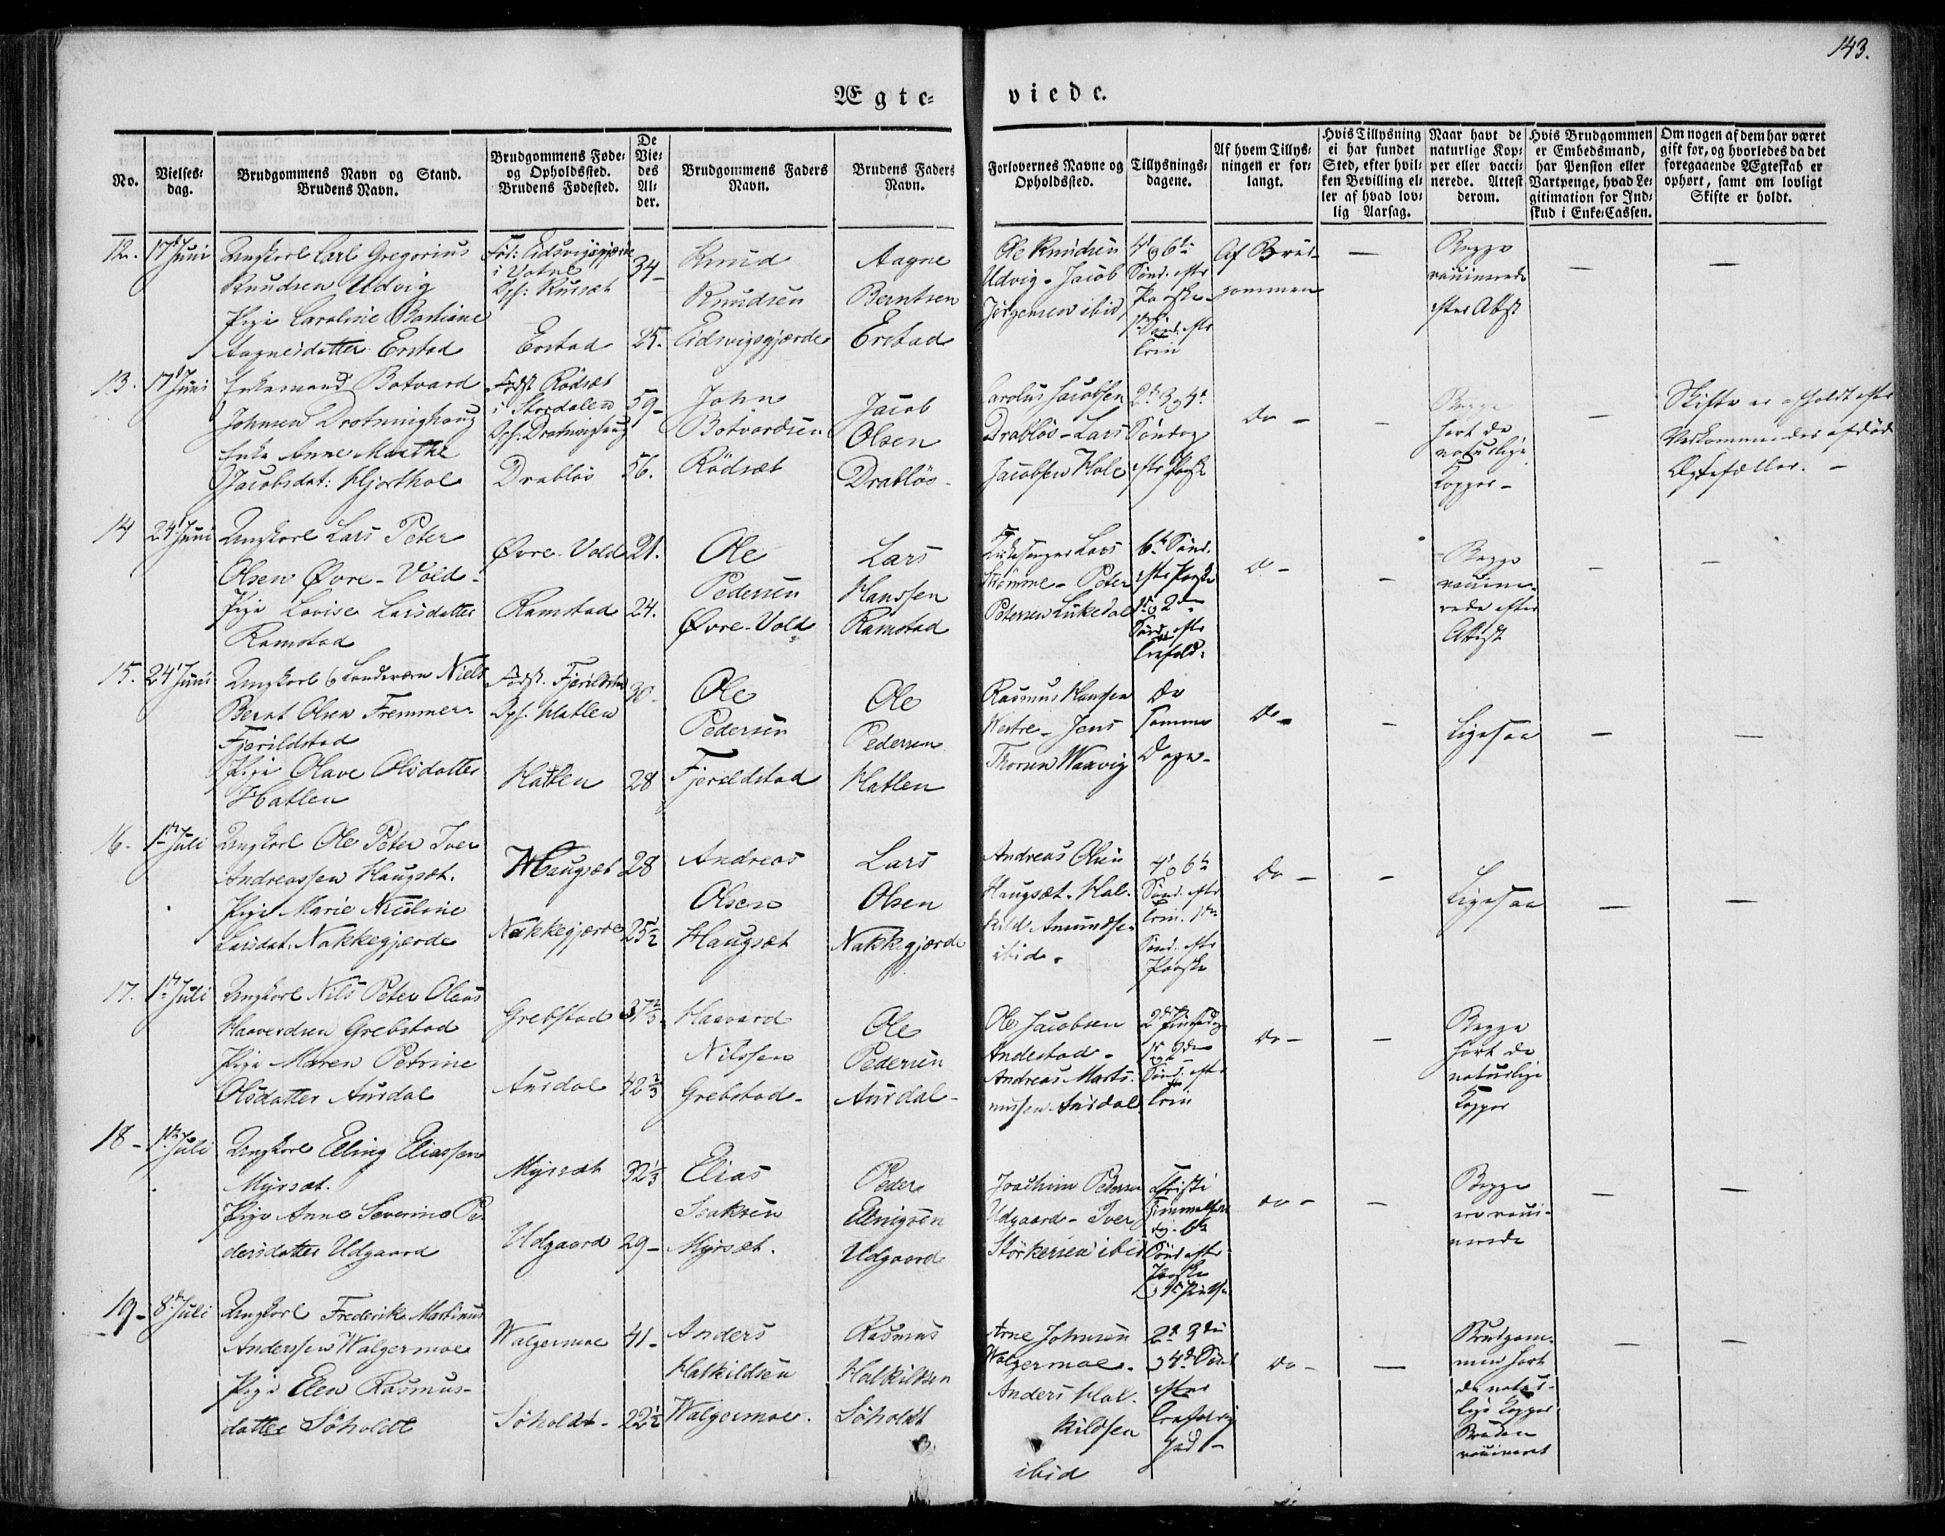 143.
Ægte- viede.
No.
Vielses-
dag.
Brudgommens Navn og Stand.
Brudens Navn.
Brudgommens Føde-
og Opholdssted.
Brudens Fødested.
De
Vie-
des
Al-
der.
Brudgommens Faders
Navn.
Brudens Faders
Navn.
Forlovernes Navne og
Opholdssted.
Tillysnings-
dagene.
Af hvem Tillys-
ningen er for-
langt.
Hvis Tillysning
ei har fundet
Sted, efter hvil-
ken Bevilling el-
ler af hvad lov-
lig Aarsag.
Naar havt de
naturlige Kop-
per eller vacci-
nerede. Attest
derom.
Hvis Brudgommen
er Embedsmand,
har Pension eller
Vartpenge, hvad Le-
gitimation for Ind-
skud i Enke-Cassen.
Om nogen af dem har været
gift før, og hvorledes da det
foregaaende Ægteskab er
ophørt, samt om lovligt
Skifte er holdt.
12. 17 Juni
Ungkarl Carl Gregorius
Knudsen Udvig
Pige Caroline Bastiane
Aagnesdatter Erstad
Erstad
34-
25.
Knud
Knudsen
Eidsvigsgjærde
Aagne
Berntsen
Erstad
Ole Knudsen
Udvig - Jacob
Jørgensen ibid
4d og 6te
Sønd. eftr
Paaske
1ste Sønd. eftr
Trin
Af Brud-
gommen
—
Begge
vaccinerede
efter Attst
—
—
13. 17 Juni
Enkemand Botvard
Johnsen Drotninghaug
Enke Anne Marthe
Jacobsdat: Hjorthol
Født Rødsæt
i Stordalen
Oph: Drotninghaug
Drabløs
59-
56.
John
Botvardsen
Rødsæt
Jacob
Olsen
Drabløs-
Carolus Jacobsen
Drabløs - Lars
Jacobsen Hole
2d 3 og 4d
Søndag
eftr Paaske
Do -
—
Begge
havt de
naturlige
Kopper -
—
Skifte er afholdt efter
Vedkommendes afdøde
Ægtefæller. -
14 24 Juni
Ungkarl Lars Peter
Olsen Øvre-Vold-
Pige Lovise Larsdatter
Ramstad
Øvre-Vold
Ramstad
21.
24.
Ole
Pedersen
Øvre-Vold
Lars
Hanssen
Ramstad
Kirkesanger Lars
Strømme - Peter
Petersen Likedal
6te Sønd.
eftr Paaske
1ste og 2den
Sønd. eftr
Trefold:
Do -
—
Begge
vaccine-
rede efter
Attest
—
—
15. 24 Juni
Ungkarl &amp; Landværn Niels
Bernt Olsen Fremmer-
Fjerildstad
Pige Olave Olsdatter
Hatlen
Født. Fjerildstad
Oph. Hatlen
Hatlen
30-
28
Ole
Pedersen
Fjerildstad
Ole
Pedersen
Hatlen
Rasmus Hansen
Westre - Jens
Thorsen Waavig
De
samme
Dage -
Do -
—
Ligesaa
—
—
16- 1ste Juli
Ungkarl Ole Peter Iver
Andreassen Haugsæt.
Pige Marie Nicoline
Larsdat. Nakkegjerde
Haugsæt
Nakkegjærde
28
25½
Andreas
Olsen
Haugsæt
Lars
Olsen
Nakkegjærde
Andreas Olsen
Haugsæt - Hal-
kild Amundse-
ibid.
4d og 6te
Sønd. eftr
Trin. 1ste
Sønd. eftr
Paaske
Do -
—
Ligesaa
—
—
17. 1ste Juli
Ungkarl Nils Peter Olaus
Haavardsen Grebstad
Pige Maren Petrine
Olsdatter Aursdal
Grebstad
Aursdal
37⅔
42⅔
Haavard
Nilssen
Grebstad-
Ole
Pedersen
Aursdal-
Ole Jacobsen
Andestad -
Andreas Marti-
nussen Aursdal
2den Pintsedag
1ste og 2den
Sønd. eftr
Trin
Do -
—
Begge
havt de
naturlige
Kopper
18- 1ste Juli
Ungkarl Elling Eliassen
Myrsæt.
Pige Anne Severine Pe-
dersdatter Udgaard
Myrsæt
Udgaard
32⅓
29-
Elias
Isaksen
Myrsæt.
Peder
Elingsen
Udgaard
Joachim Pedersen
Udgaard - Iver
Størkersen ibid
Christi
Himmelfart
dg. 6te
Sønd. efter
Paaske
Do -
—
Begge
ere vacci-
nerede
—
—
19- 8de Juli
Ungkarl Frederik Martinus
Anderssen Walgermoe
Pige Elen Rasmus-
datter Søholdt
Walgermoe
Søholdt-
41-
22½
Anders
Halkildsen
Walgermoe.
Rasmus
Halkildsen
Søholdt
Arne Johnsen
Walgermoe.
Anders Hal-
kildsen
ibid
2d 3die
og 4de Sønd
efter
Trefoldig
hed -
Do -
—
Brudgom-
men havt
de natur-
lige Kopper
Bruden
vaccineret
—
—